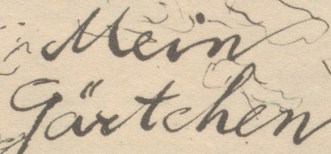 Mein
Gärtchen